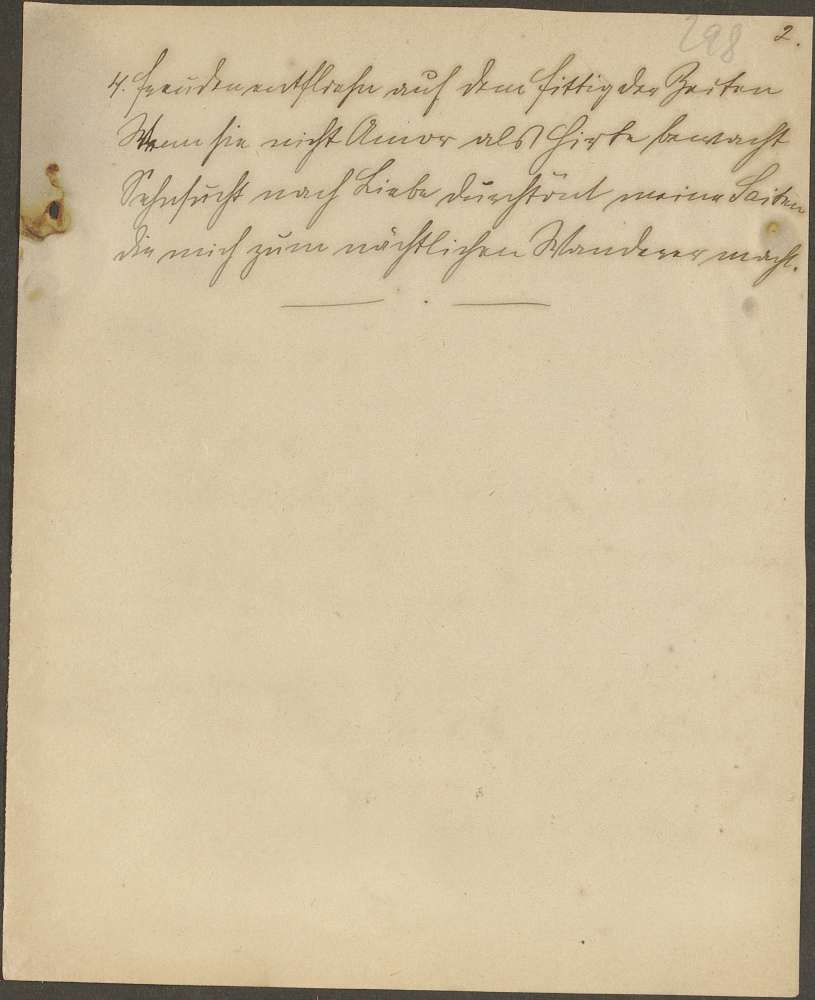 298 2.
4. Freuden entfliehn auf dem Fittig der Zeiten
Wenn sie nicht Amor als Hirte bewacht
Sehnsucht nach Liebe durchtönt meine Saiten
die mich zum nächtlichen Wanderer macht.